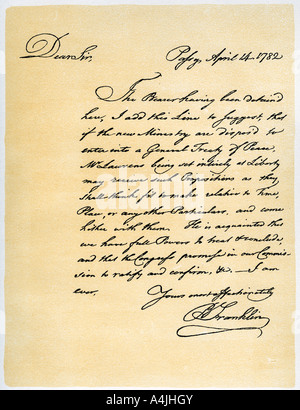 Dear Sir,
Passy, April 14. 1782
The Bearer having been detained
here, I add this Line to suggest, that
if the new Ministry are dispos'd to
enter into a General Treaty of Peace,
Mr Laurens being set entirely at Liberty
may receive such Propositions as they
shall think fit to make relative to Time,
Place, or any other Particulars, and come
hither with them. He is acquainted that
we have full Powers to treat & conclude,
and that the Congress promise in our Commis-
sion to ratify and confirm, &c. — I am
ever,
Yours most affectionately
B Franklin
alamy
A4JHGY